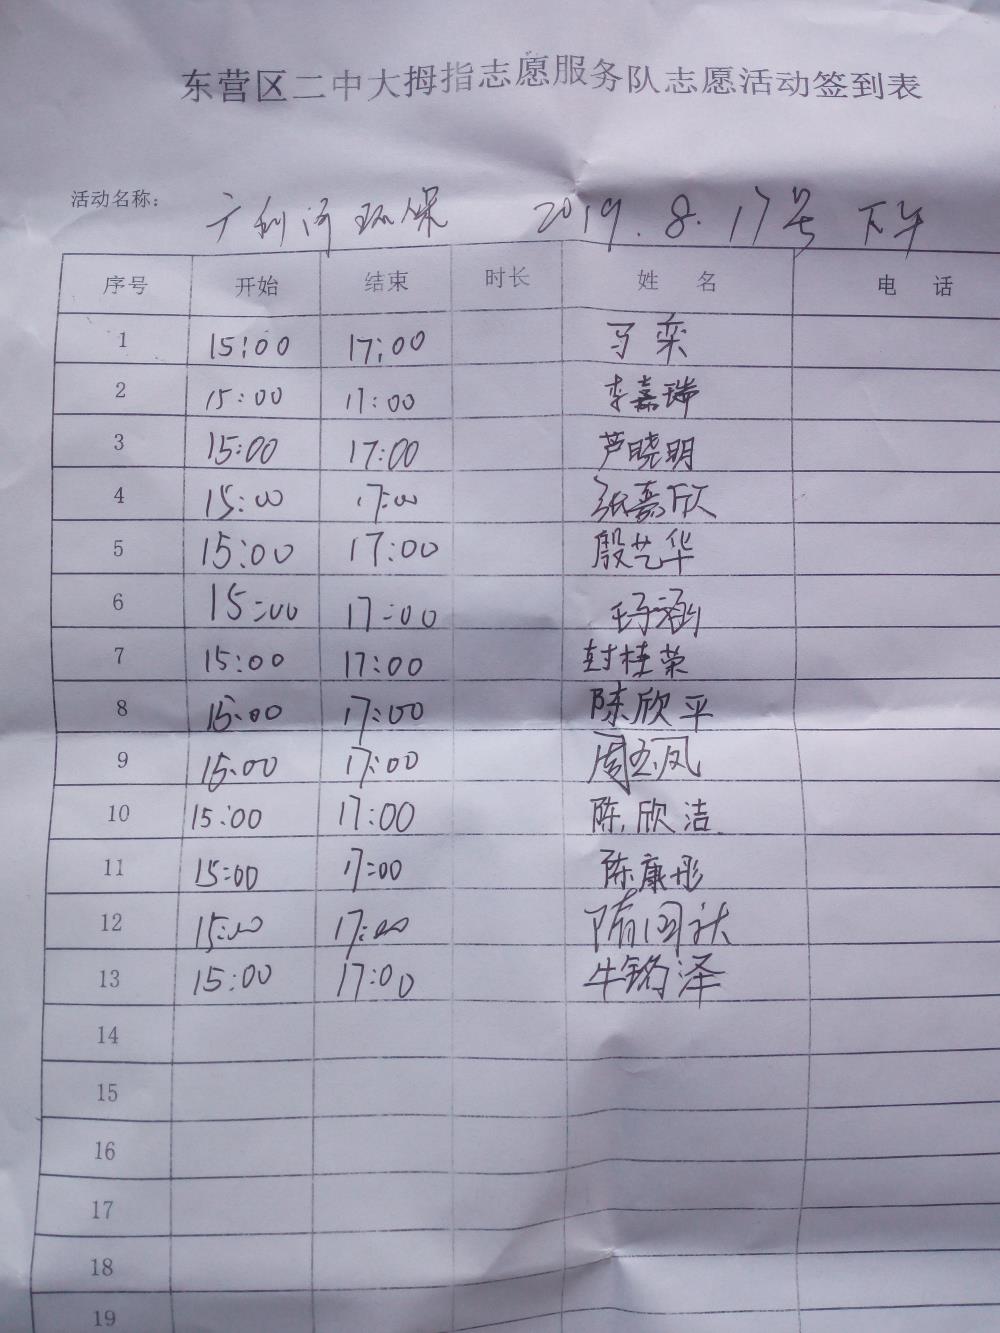 东营区二中大拇指志愿服务队志愿活动签到表
活动名称： 广利河环保 2019.8.17号 下午
序号 开始 结束 时长 姓名 电话
1 15:00 17:00 马栾
2 15:00 17:00 李嘉瑞
3 15:00 17:00 芦晓明
4 15:00 17:00 张嘉欣
5 15:00 17:00 殷艺华
6 15:00 17:00
7 15:00 17:00 封桂荣
8 15:00 17:00 陈欣平
9 15:00 17:00 周玉凤
10 15:00 17:00 陈欣洁
11 15:00 17:00 陈康彤
12 15:00 17:00 隋国
13 15:00 17:00 牛铭泽
14
15
16
17
18
19